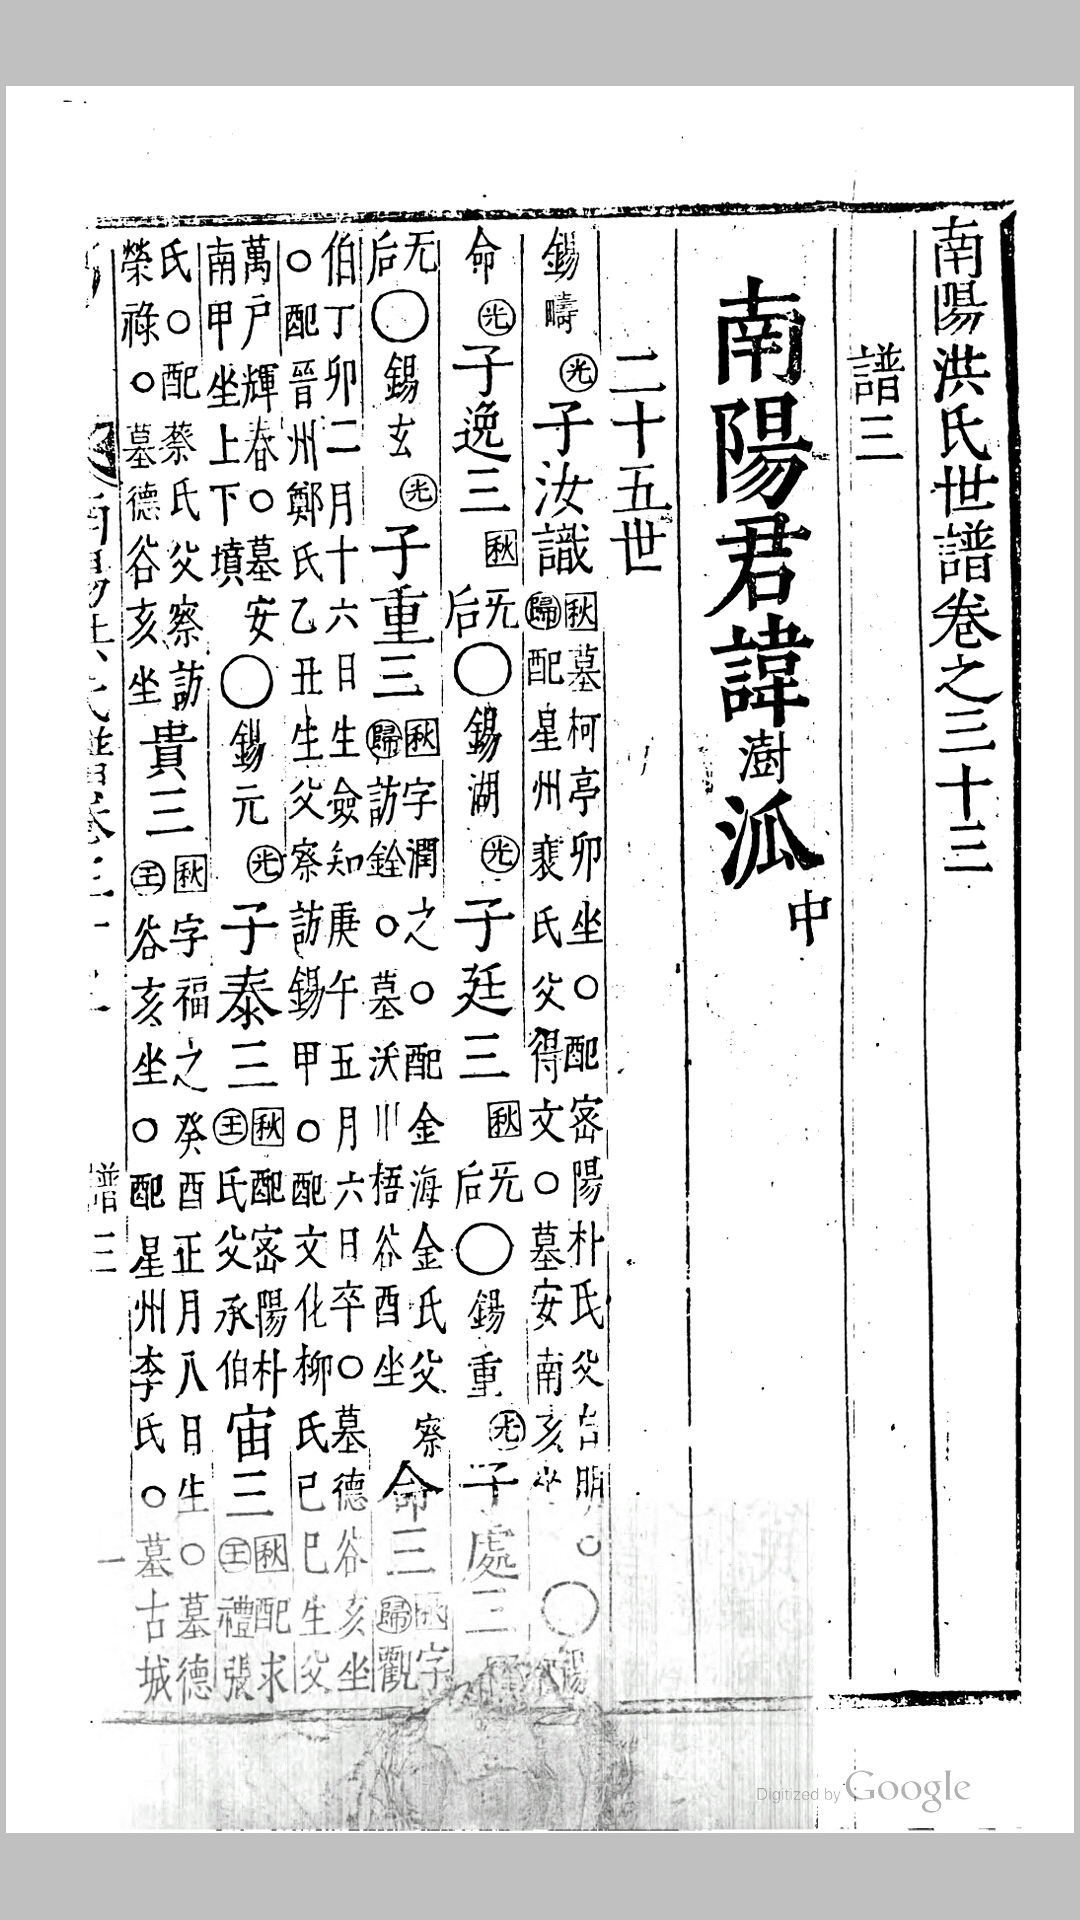 南陽洪氏世譜卷之三十三
譜三
南陽君諱澍泒中
二十五世
錫疇 光 子汝識 秋 墓柯亭卯坐○配密陽朴氏父台明○
歸 配星州裵氏父得文○墓安南亥坐 ○
命 光 子逸三 秋 无后 ○ 錫湖 光 子廷三 秋 无后 ○ 錫重 光 子處三
无后 ○ 錫玄 光 子重三 秋 字潤之○配金海金氏父察
歸 訪銓○墓沃川梧谷酉坐 命三 字
歸 觀
伯丁卯二月十六日生僉知庚午五月六日卒○墓德谷亥坐
○配晉州鄭氏乙丑生父察訪錫甲○配文化柳氏己巳生父
萬戶輝春○墓安
南甲坐上下墳 ○ 錫元 光 子泰三 秋 配密陽朴
王 氏父承伯 宙三 秋 配求
王 禮張
氏○配蔡氏父察訪
榮祿○墓德谷亥坐 貴三 秋 字福之癸酉正月八日生○墓德
王 谷亥坐○配星州李氏○墓古城
譜三
一
Digitized by Google